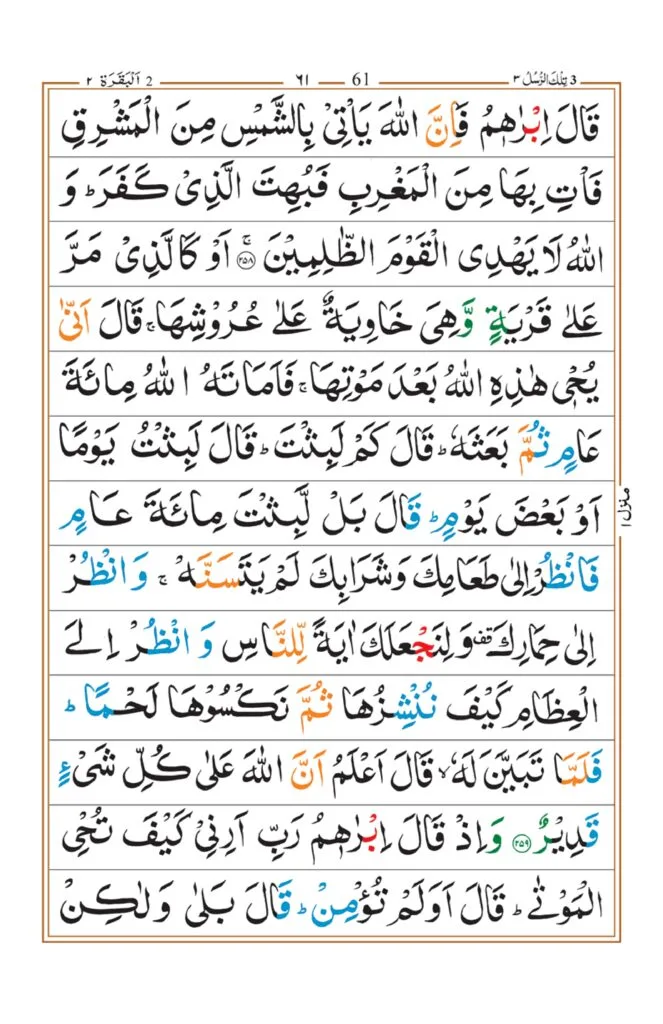 3 تِلْكَ الرُّسُلُ ٣ 61 ٦١ 2 اَلْبَقَرَة ٢
قَالَ اِبْرٰهٖمُ فَاِنَّ اللّٰهَ يَاْتِىْ بِالشَّمْسِ مِنَ الْمَشْرِقِ
فَاْتِ بِهَا مِنَ الْمَغْرِبِ فَبُهِتَ الَّذِىْ كَفَرَ ؕ وَ
اللّٰهُ لَا يَهْدِى الْقَوْمَ الظّٰلِمِيْنَ ۚ‏ ﴿۲۵۸﴾ اَوْ كَالَّذِىْ مَرَّ
عَلٰى قَرْيَةٍ وَّهِىَ خَاوِيَةٌ عَلٰى عُرُوْشِهَا ۚ قَالَ اَنّٰى
يُحْىٖ هٰذِهِ اللّٰهُ بَعْدَ مَوْتِهَا ۚ فَاَمَاتَهُ اللّٰهُ مِائَةَ
عَامٍ ثُمَّ بَعَثَهٗ ؕ قَالَ كَمْ لَبِثْتَ ؕ قَالَ لَبِثْتُ يَوْمًا
اَوْ بَعْضَ يَوْمٍ ؕ قَالَ بَلْ لَّبِثْتَ مِائَةَ عَامٍ
فَانْظُرْ اِلٰى طَعَامِكَ وَشَرَابِكَ لَمْ يَتَسَنَّهْ ۚ وَانْظُرْ
اِلٰى حِمَارِكَ قف وَلِنَجْعَلَكَ اٰيَةً لِّلنَّاسِ وَانْظُرْ اِلَى
الْعِظَامِ كَيْفَ نُنْشِزُهَا ثُمَّ نَكْسُوْهَا لَحْمًا ؕ
فَلَمَّا تَبَيَّنَ لَهٗ ۙ قَالَ اَعْلَمُ اَنَّ اللّٰهَ عَلٰى كُلِّ شَىْءٍ
قَدِيْرٌ ﴿۲۵۹﴾ وَاِذْ قَالَ اِبْرٰهٖمُ رَبِّ اَرِنِىْ كَيْفَ تُحْىِ
الْمَوْتٰى ؕ قَالَ اَوَلَمْ تُؤْمِنْ ؕ قَالَ بَلٰى وَلٰكِنْ
منزل ١